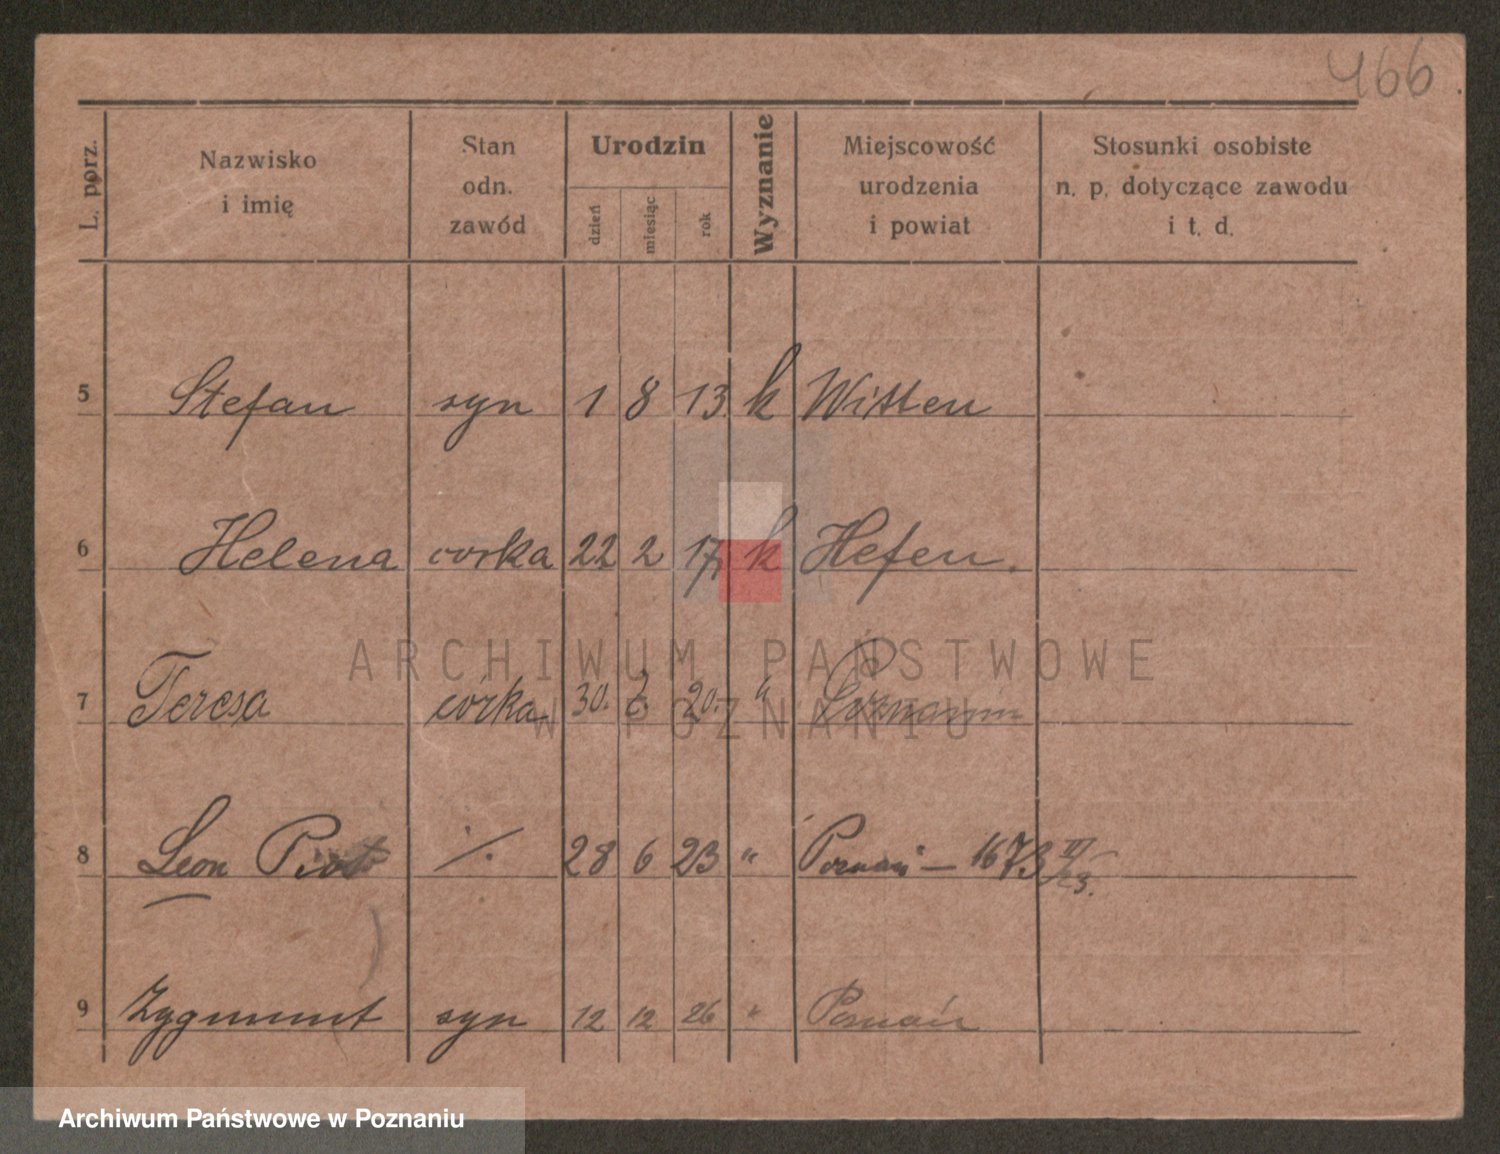 466.
L. porz.
Nazwisko i imię
Stan odn. zawód
Urodzin
dzień
miesiąc
rok
Wyznanie
Miejscowość urodzenia i powiat
Stosunki osobiste n. p. dotyczące zawodu i t. d.
5 Stefan syn 1 8 13 k Witten
6 Helena corka 22 2 17 k Hefen.
7 Teresa córka 30. 20. "
8 Leon Piotr ·/. 28 6 23 " Poznań – 1673 IV/23.
9 Zygmunt syn 12 12 26 " Poznań
ARCHIWUM PAŃSTWOWE
W POZNANIU
Archiwum Państwowe w Poznaniu